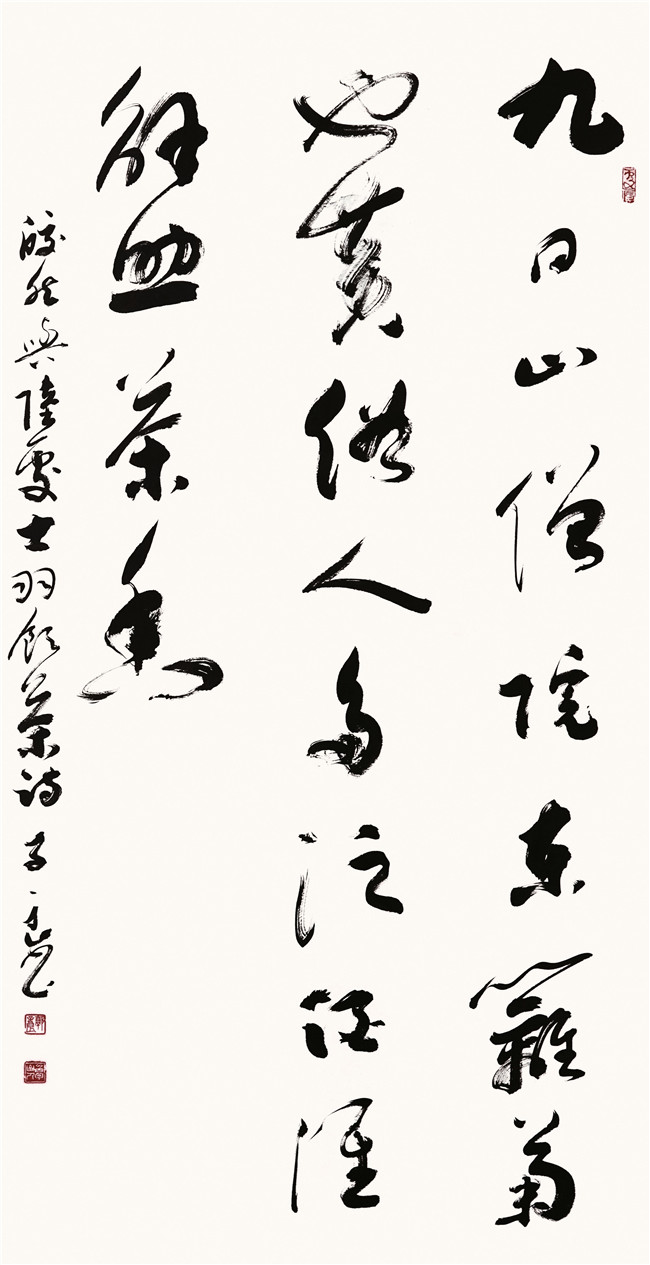 九日山僧院東籬菊
也黃俗人多泛酒誰
解助茶香
皎然與陸處士羽飲茶詩